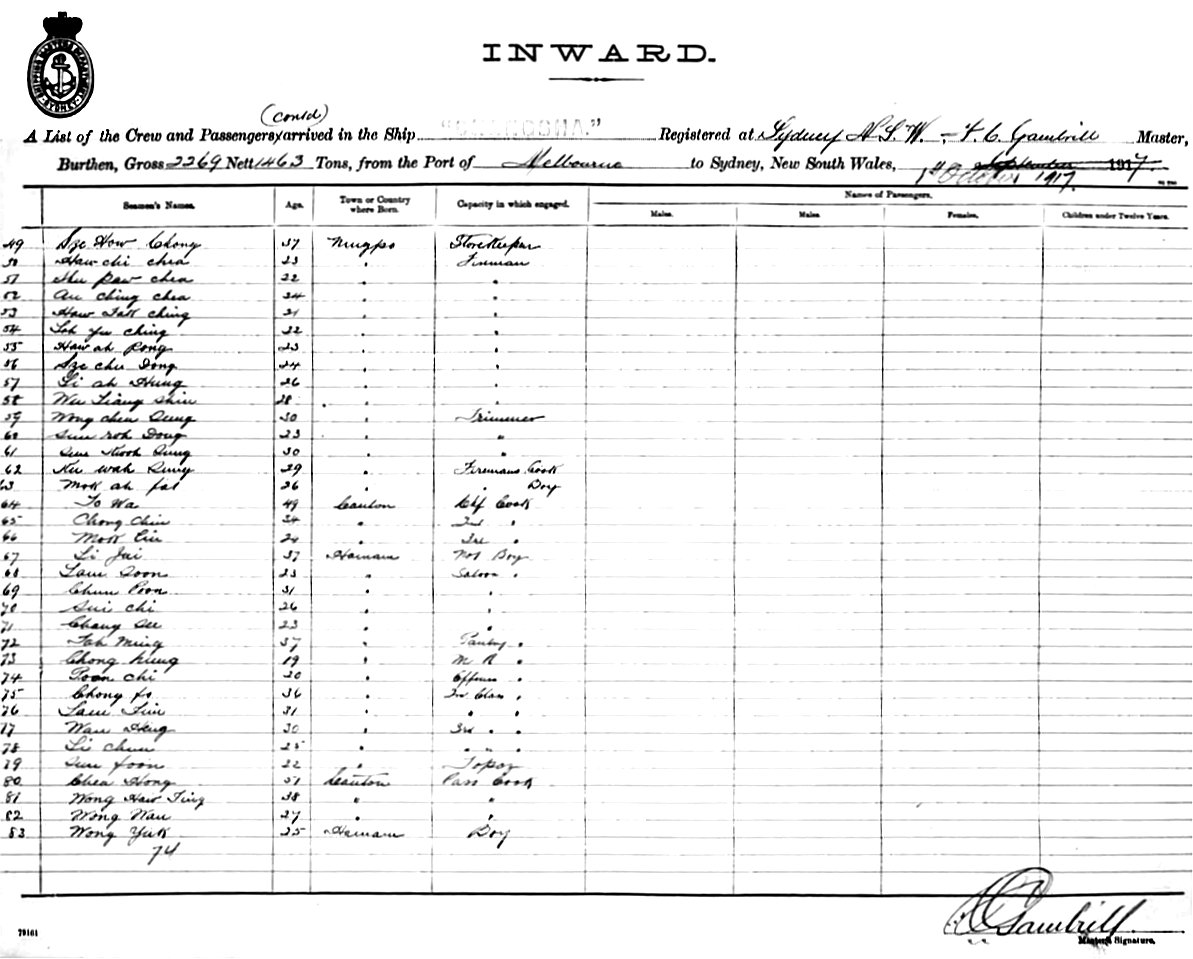 INWARD.
(contd)
A List of the Crew and Passengers, arrived in the Ship Registered at Sydney N.S.W. - F. C. Gambrill Master,
Burthen, Gross 2269 Nett 1463 Tons, from the Port of Melbourne to Sydney, New South Wales, September 1917.
1st October 1917.
Names of Passengers.
Seamen's Names. Age. Town or Country where Born. Capacity in which engaged. Males. Males. Females. Children under Twelve Years.
49 Sze How Chong 37 Ningpo Storekeeper
50 Haw chi chea 23 " Fireman
51 paw chea 22 " "
52 au ching chea 24 " "
53 Haw Tak ching 21 " "
54 Loh yu ching 22 " "
55 Haw ah Pong 23 " "
56 Sze chu Dong 24 " "
57 Li ah Hung 26 " "
58 Wu Liang Shin 28 " "
59 Wong chen Sung 30 " Trimmer
60 Sun Dong 23 " "
61 Sung 30 " "
62 Ku wah Sung 29 " Firemans Cook
63 Mok ah fat 26 " " Boy
64 To Wa 49 Canton Chf Cook
65 Chong Chin 34 " 2nd "
66 Mok Lin 24 " 3rd "
67 Li Jui 37 Hainam No 1 Boy
68 Lam Soon 23 " Saloon "
69 Chun Poon 31 " "
70 Sui Chi 26 " "
71 Chang See 23 " "
72 Toh Ming 37 " Pantry "
73 Chong Kung 19 " M R "
74 Poon Chi 20 " Officers "
75 Chong fo 36 " 2n Class "
76 Lam Tin 31 " " "
77 Wan Heng 30 " 3rd " "
78 Li chun 25 " " " "
79 Sun foon 22 " Topaz
80 Chea Hong 51 Canton Pass Cook
81 Wong Haw Ting 38 " "
82 Wong Wan 27 " "
83 Wong Yuk 25 Hainam Boy
74
F C Gambrill
Master's Signature.
79161